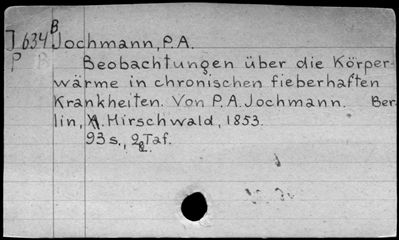 J 634 B Jochmann, P.A.
P P Beobachtungen über die Körper-
wärme in chronischen fieberhaften
Krankheiten. Von P.A. Jochmann. Ber-
lin, A. Hirschwald, 1853.
93 s., 2 Taf.